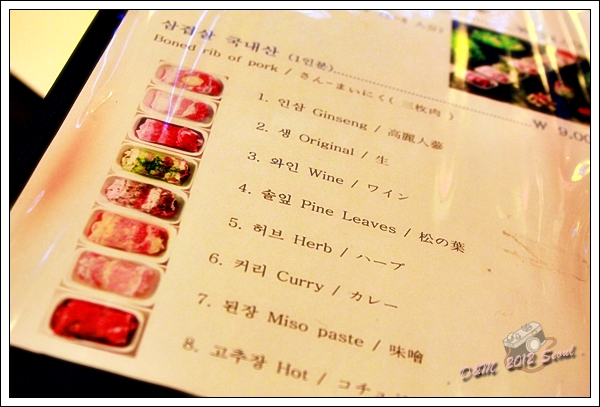 삼겹살 국내산 (1인분)
Boned rib of pork / さんーまいにく( 三枚肉 )
₩ 9,00
1. 인삼 Ginseng / 高麗人蔘
2. 생 Original / 生
3. 와인 Wine / ワイン
4. 솔잎 Pine Leaves / 松の葉
5. 허브 Herb / ハーブ
6. 커리 Curry / カレー
7. 된장 Miso paste / 味噌
8. 고추장 Hot / コチュ
D&M 2012 Seoul